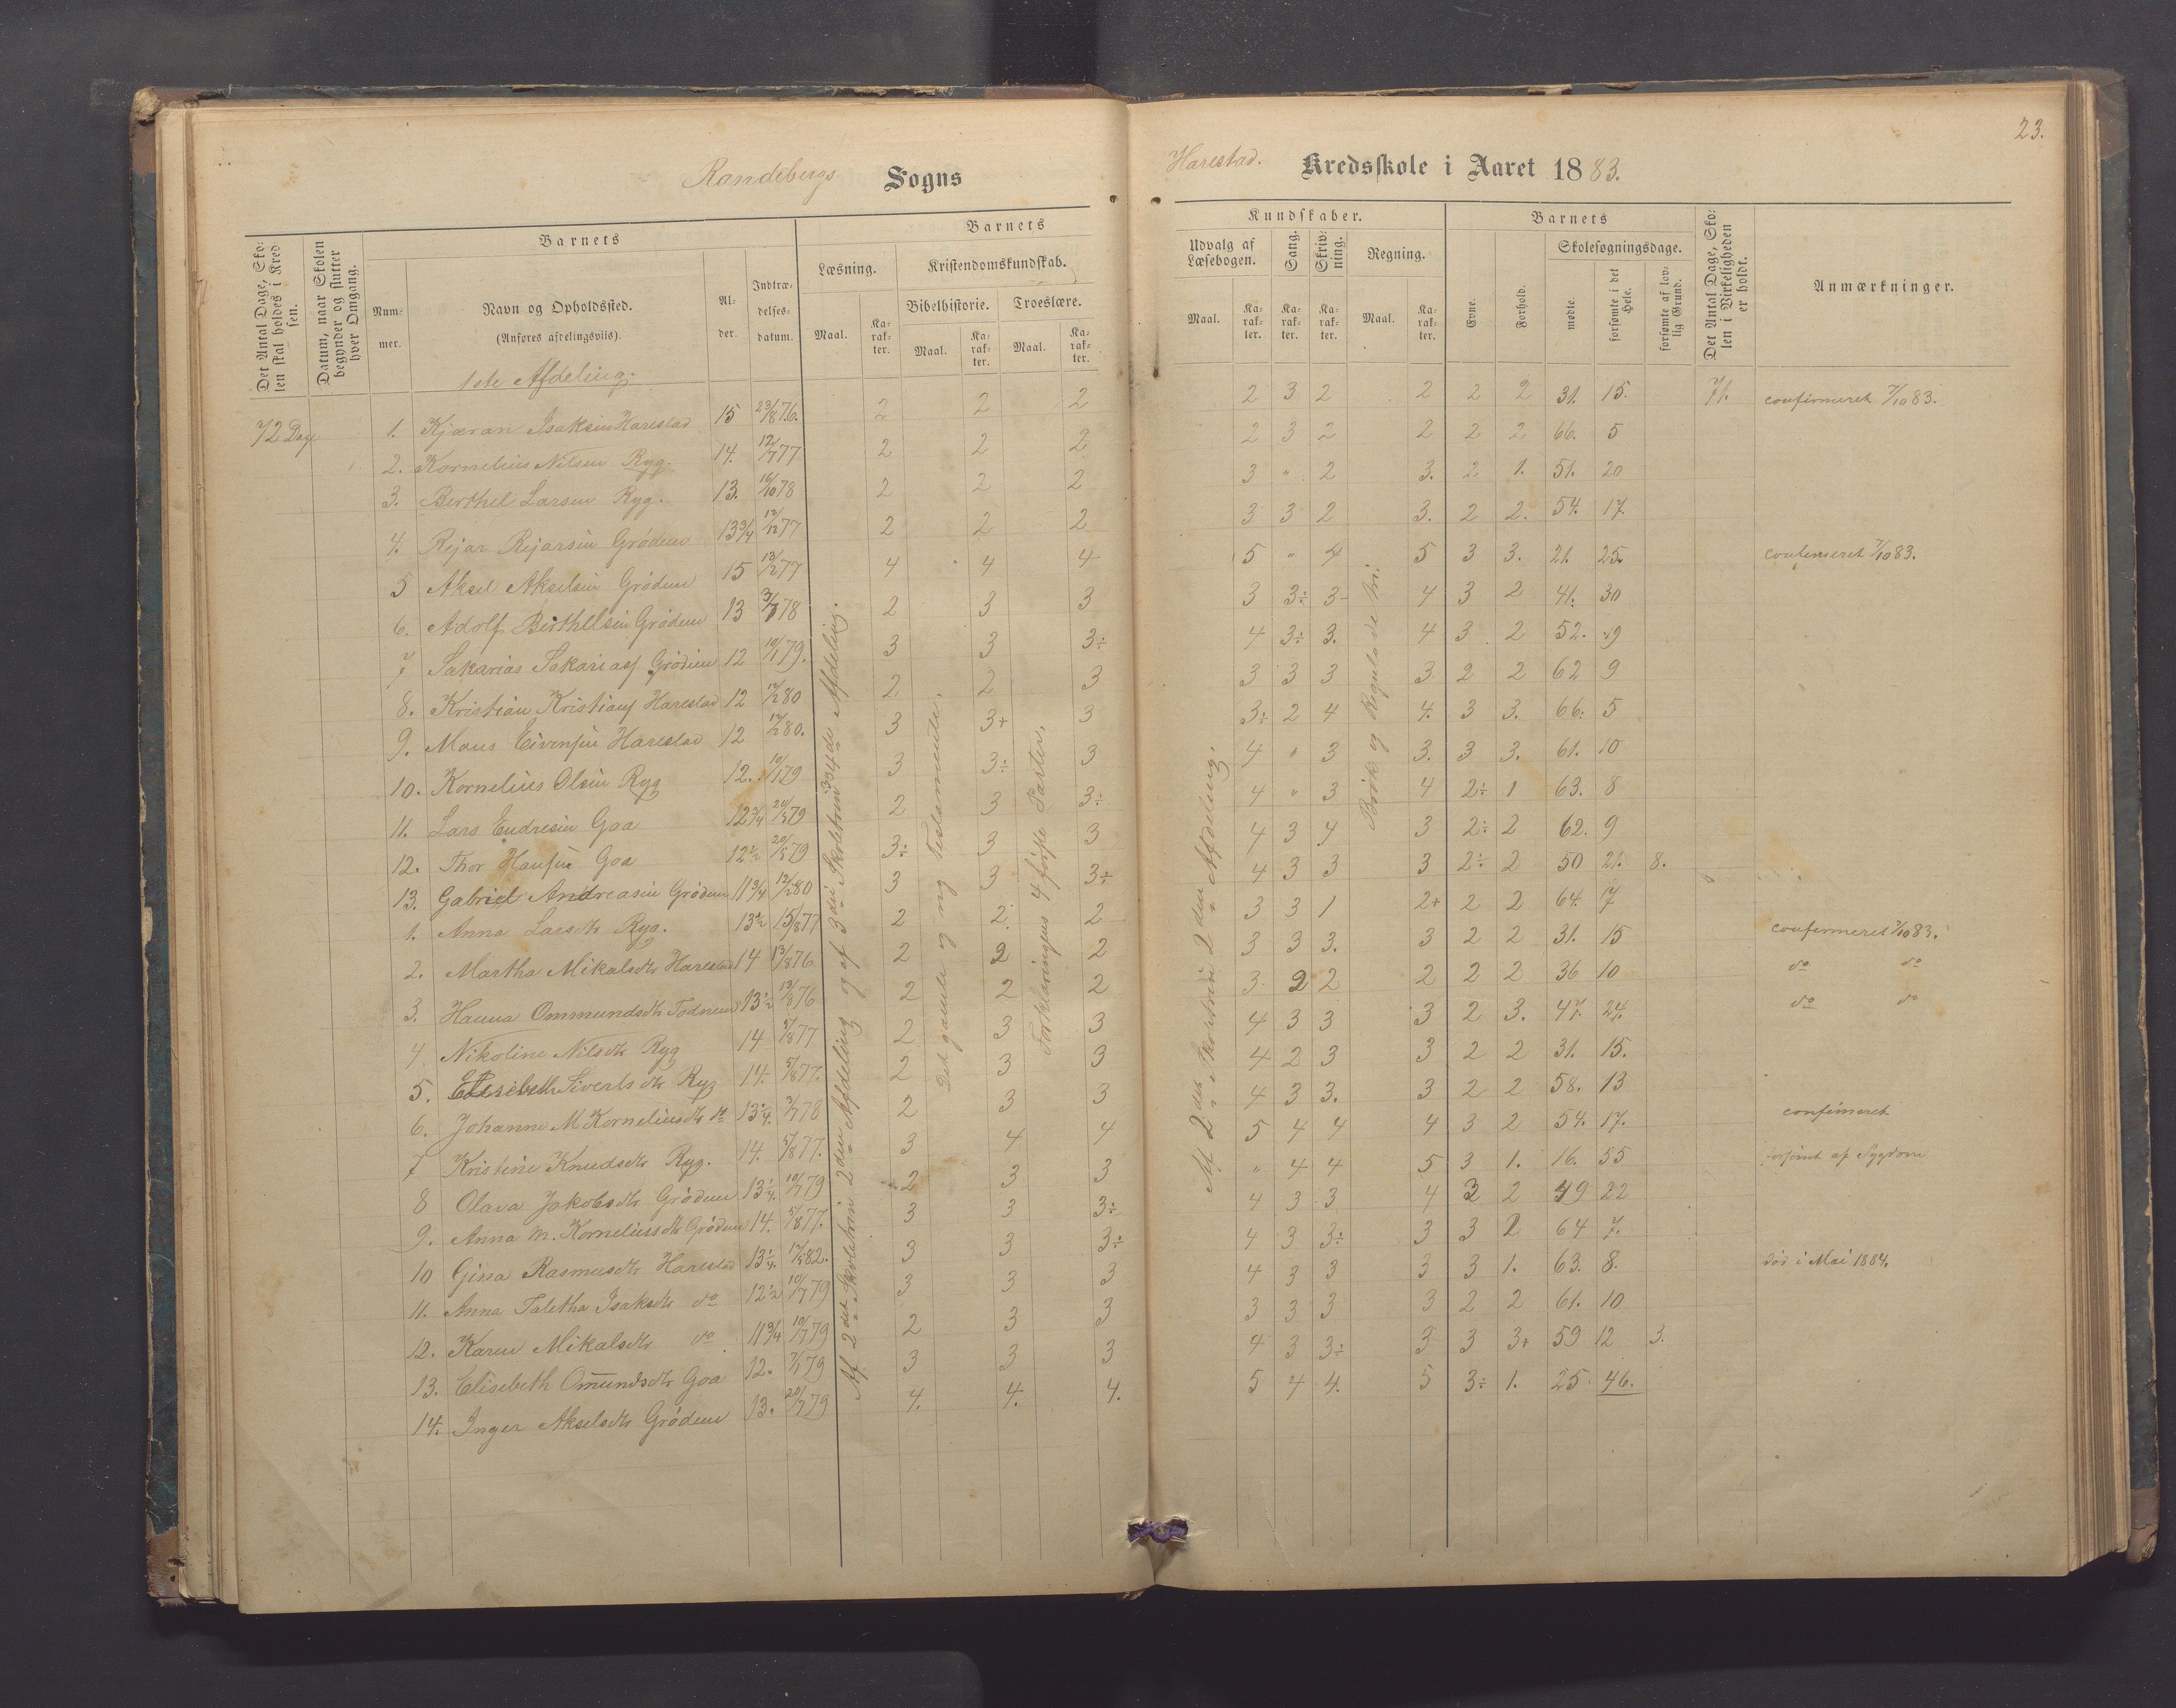 23.
Randebergs Sogns Harestad. Kredsskole i Aaret 1883.
Det Antal Dage, Skolen skal holdes i Kredsen.
Datum, naar Skolen begynder og slutter hver Omgang.
Barnets
Nummer.
Navn og Opholdssted.
(Anføres afdelingsviis).
Alder.
Indtrædelsesdatum.
Barnets
Læsning.
Maal.
Karakter.
Kristendomskundskab.
Bibelhistorie.
Maal.
Karakter.
Troeslære.
Maal.
Karakter.
Kundskaber.
Udvalg af Læsebogen.
Maal.
Karakter.
Sang.
Karakter.
Skrivning.
Karakter.
Regning.
Maal.
Karakter.
Barnets
Evne.
Forhold.
Skolesøgningsdage.
mødte.
forsømte i det Hele.
forsømte af lovlig Grund.
Det Antal Dage, Skolen i Virkeligheden er holdt.
Anmærkninger.
1ste Afdeling.
72 Dage 1. Kjæran Isaksen Harestad 15 23/8 76. 2 2 2 2 3 2 2 2 2 31. 15. 71. confirmeret 7/10 83.
2. Kornelius Nilsen Ryg. 14. 12/7 77 2 2 2 2 3 2 2 2 2 66. 5
3. Berthel Larsen Ryg. 13. 16/10 78 2 2 2 3 " 2 3. 2 1. 51. 20
4. Rejar Rejarsen Grødem 13 3/4 12/12 77 2 2 2 3 3 2 3. 2 2. 54. 17.
5 Aksel Akselsen Grødem 15 13/12 77 4 4 4 5 " 4 5 3 3. 21. 25. confirmeret 7/10 83.
6. Adolf Berthelsen Grødem 13 3/7 78 2 3 3 3 3÷ 3- 4 3 2 41. 30
7 Sakarias Sakarias Grødem 12 10/1 79. 3 3 3÷ 4 3÷ 3. 4 3 2 52. 19
8. Kristian Kristians Harestad 12 12/2 80 2 2 3 3 3 3 3 2 2 62 9
9. Mons Eivensen Harestad 12 12/2 80. 3 3+ 3 3÷ 2 4 4. 3 3. 66. 5
10. Kornelius Olsen Ryg 12. 10/1 79 3 3÷ 3 4 " 3 3. 3 3. 61. 10
11. Lars Endresen Goa 12 3/4 20/3 79 2 3 3÷ 4 " 3 4 2÷ 1 63. 8
12. Thor Hansen Goa 12 1/2 20/3 79 3÷ 3 3 4 3 4 3 2÷ 2 62. 9
13. Gabriel Andreasen Grødem 11 3/4 12/2 80 3 3 3+ 4 3 3 3 2÷ 2 50 21. 8.
1. Anna Larsdtr Ryg. 13 1/2 15/8 77 2 2. 2 3 3 1 2+ 2 2 64. 7
2. Martha Mikalsdtr Harestad 14 13/8 76 2 2 2 3 3 3. 3 2 2 31. 15 confirmeret 7/10 83.
3. Hanna Ommundsdtr Todnem 13 1/2 13/8 76 2 2 2 3 2 2 2 2 2 36 10 do do
4 Nikoline Nilsdtr Ryg 14 5/8 77 2 3 3 4 3 3 3 2 3. 47. 24. do do
5. Elisebeth Sivertsdtr Ryg 14. 5/8 77. 2 3 3 4 2 3 3 2 2 31. 15.
6. Johanne M Kornelisdtr do 13 1/4. 7/7 78 2 3 3 4 3 3. 3 2 2 58. 13
7 Kristine Knudsdtr Ryg. 14. 5/8 77. 3 4 4 5 4 4 4 3 2 54. 17. confirmeret
8 Olava Jakobsdtr Grødem 13 1/4. 10/7 79 2 3 3 " 4 4 5 3 1. 16. 55 forsømt af Sygdom
9. Anna M. Korneliussdtr Grødem 14. 5/8 77. 3 3 3÷ 4 3 3 4 3 2 49 22
10 Gina Rasmusdtr Harestad 13 1/4. 82. 3 3 3÷ 4 3 3÷ 3 3 2 64 7.
11. Anna Taletha Isaksdtr do 12 1/2 10/7 79 3 3 3 4 3 3 3 3 1. 63. 8. død i Mai 1884.
12. Karen Mikalsdtr do 11 3/4 10/7 79 2 3 3 3 3 3 3 2 2 61. 10
13. Elisebeth Omundsdtr Goa 12. 7/1 79 3 3 3 4 3 3÷ 3 3 3+ 59 12 3.
14. Inger Akselsdtr Grødem 13. 20/7 79 4. 4. 4. 5 4 4. 5 3÷ 1. 25. 46.
Af 2det Skoletrin 2den Afdeling og af 3die Skoletrin 3 og 4de Afdeling.
Det gamle og ny Testamente.
Forklaringens 4 første Parter.
Af 2det Skoletrin 2den Afdeling.
Brøk og Regula de tri.